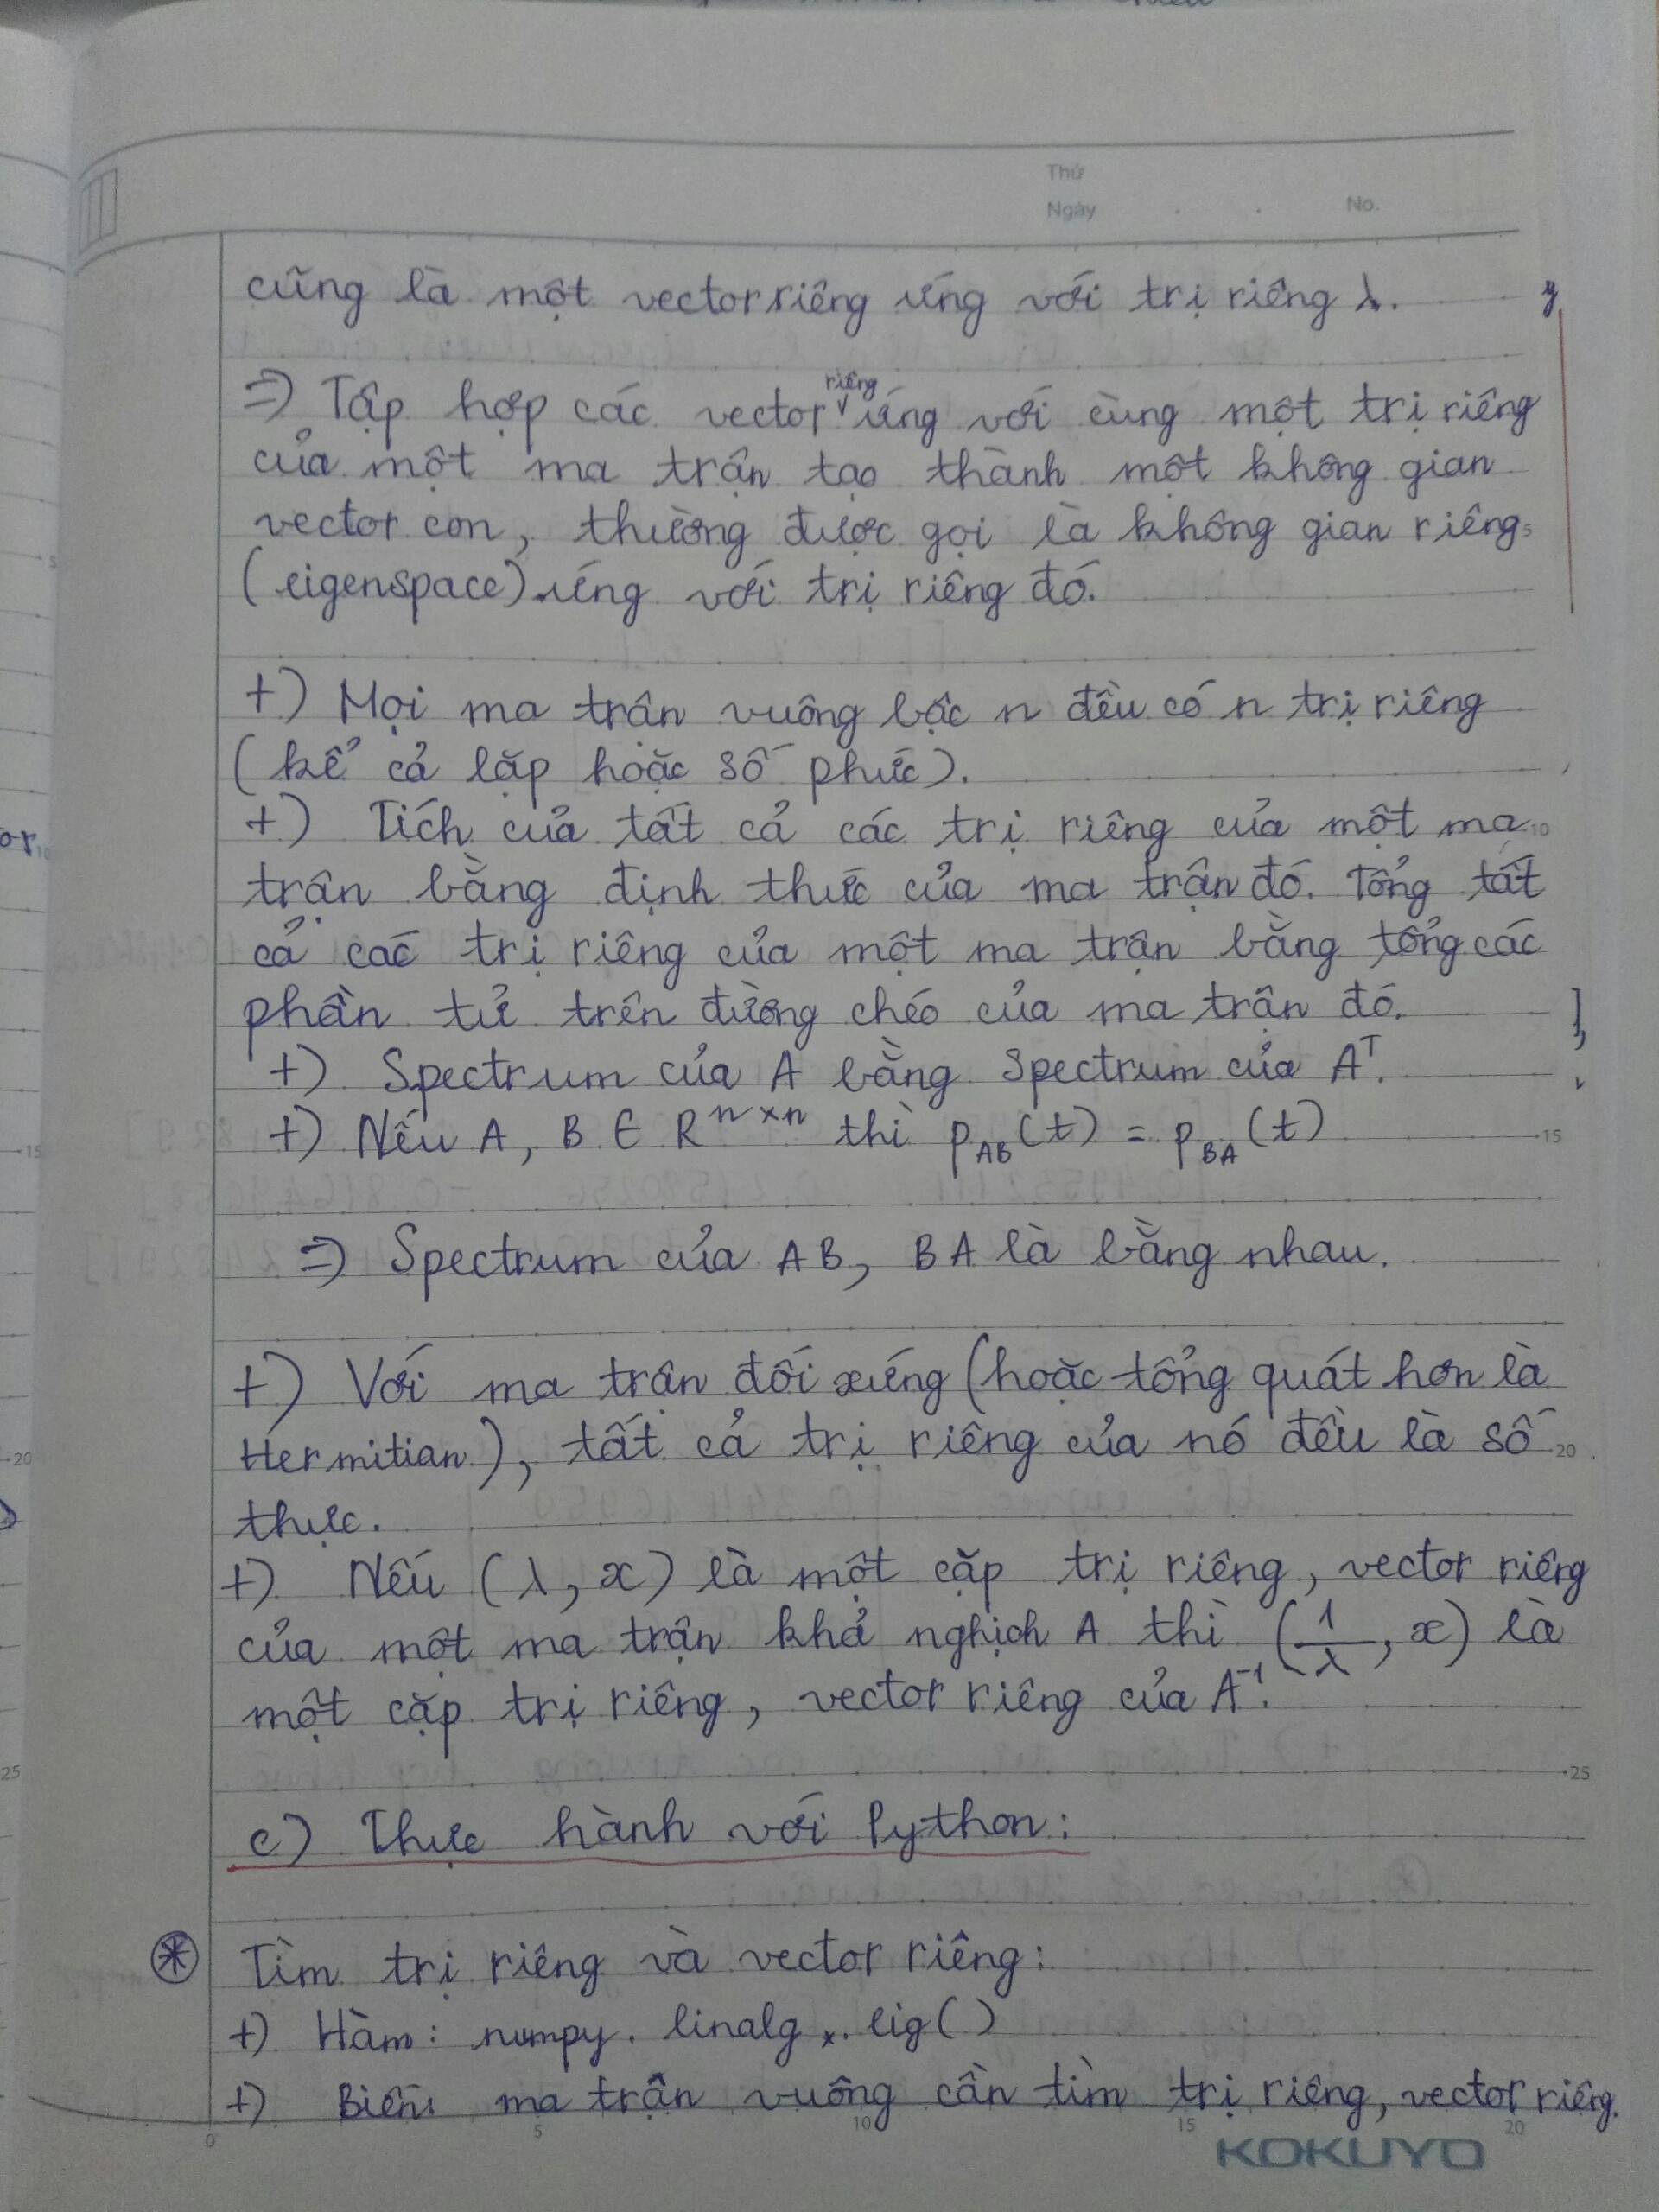 Thứ
Ngày . . No.
cũng là một vector riêng ứng với trị riêng λ.
=> Tập hợp các vector riêng ứng với cùng một trị riêng
của một ma trận tạo thành một không gian
vector con, thường được gọi là không gian riêng
(eigenspace) ứng với trị riêng đó.
+) Mọi ma trận vuông bậc n đều có n trị riêng
(kể cả lặp hoặc số phức).
+) Tích của tất cả các trị riêng của một ma
trận bằng định thức của ma trận đó. Tổng tất
cả các trị riêng của một ma trận bằng tổng các
phần tử trên đường chéo của ma trận đó.
+) Spectrum của A bằng Spectrum của Aᵀ.
+) Nếu A, B ∈ Rⁿˣⁿ thì p_AB(t) = p_BA(t)
=> Spectrum của AB, BA là bằng nhau.
+) Với ma trận đối xứng (hoặc tổng quát hơn là
Hermitian), tất cả trị riêng của nó đều là số
thực.
+) Nếu (λ, x) là một cặp trị riêng, vector riêng
của một ma trận khả nghịch A thì (1/λ, x) là
một cặp trị riêng, vector riêng của A⁻¹.
c) Thực hành với Python:
* Tìm trị riêng và vector riêng:
+) Hàm: numpy.linalg.eig()
+) Biến: ma trận vuông cần tìm trị riêng, vector riêng.
0 5 10 15 20
KOKUYO